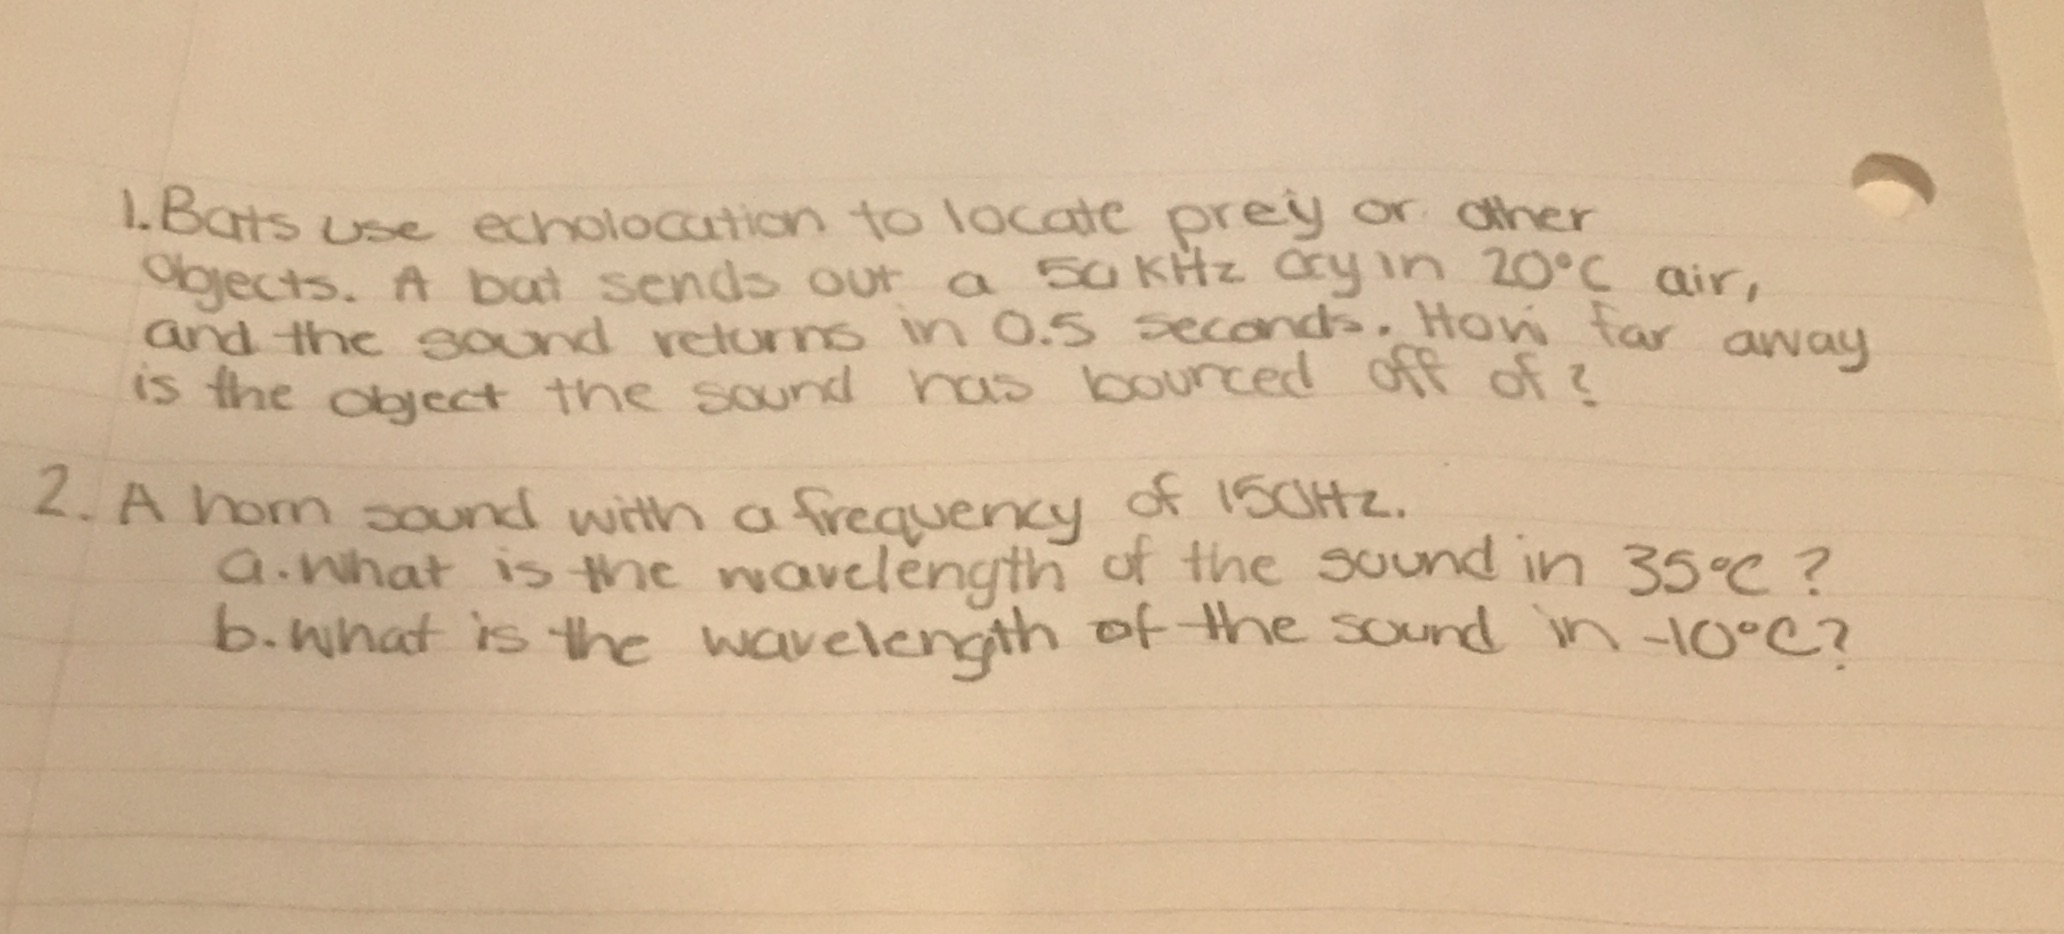 1. Bats use echolocation to locate prey or other
objects. A bat sends out a 50 KHz cry in 20°C air,
and the sound returns in 0.5 seconds. How far away
is the object the sound has bounced off of?
2. A horn sound with a frequency of 150Hz.
a. What is the wavelength of the sound in 35°C?
b. What is the wavelength of the sound in -10°C?